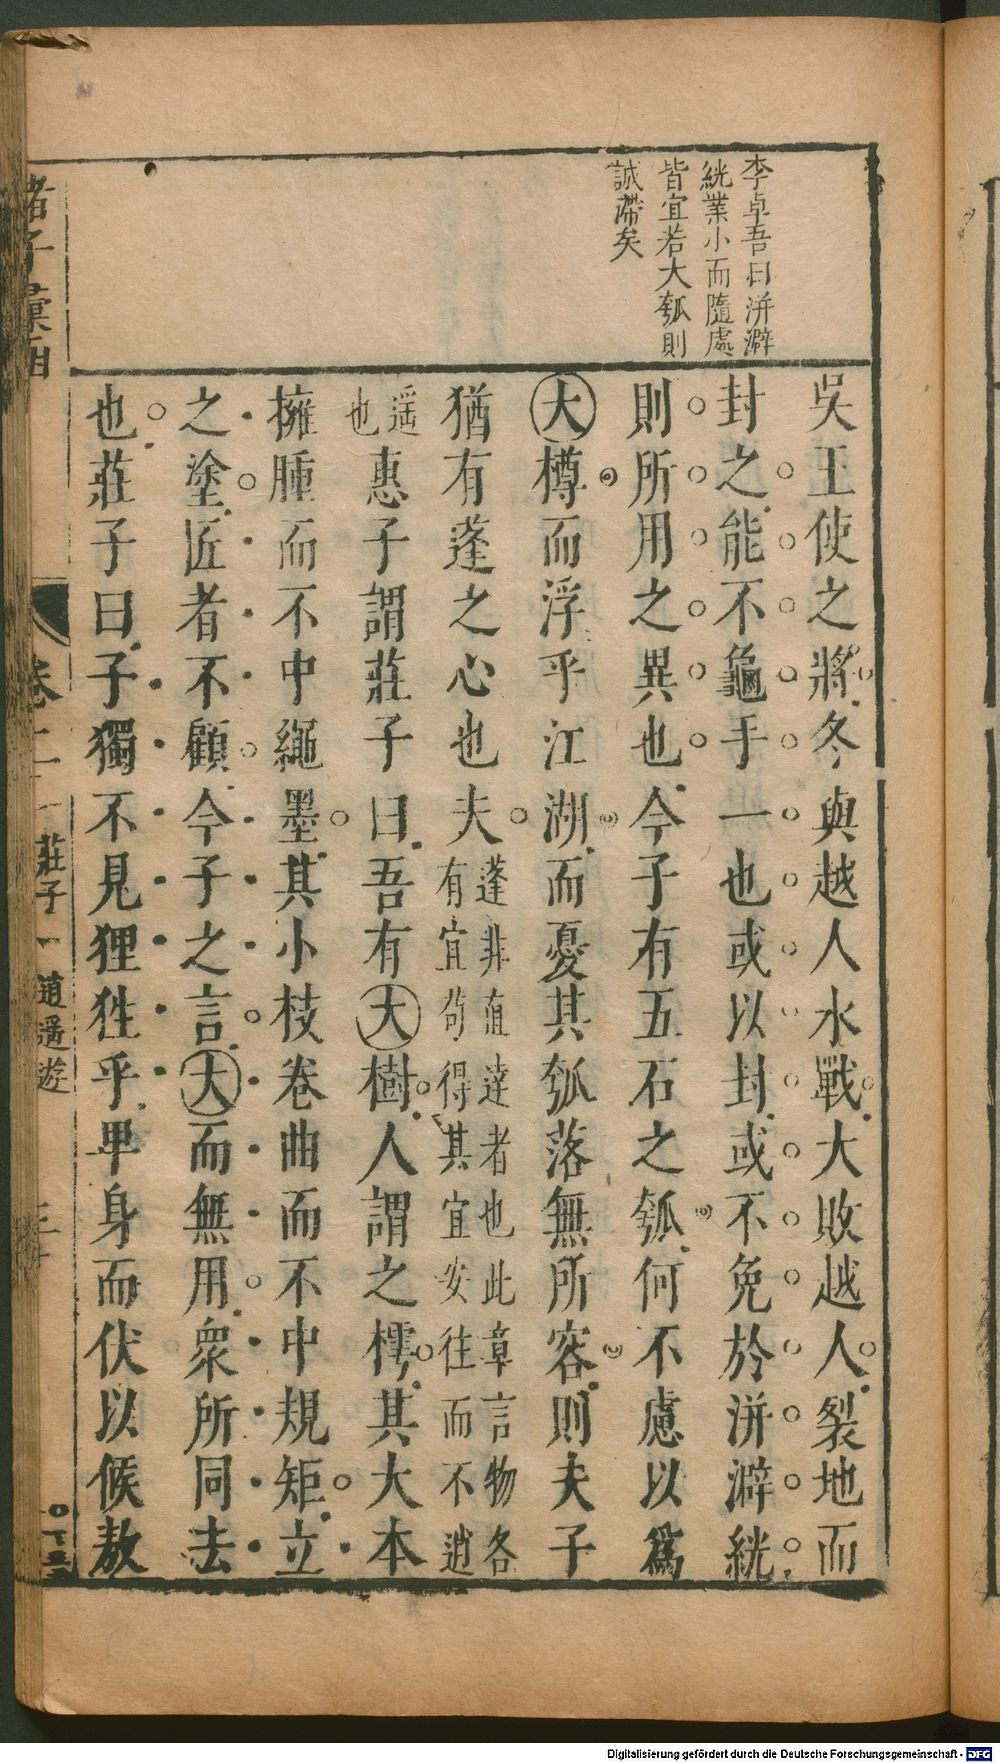 李卓吾曰洴澼
絖業小而隨處
皆宜若大瓠則
誠滯矣
吳王使之將冬與越人水戰大敗越人裂地而
封之能不龜手一也或以封或不免於洴澼絖
則所用之異也今子有五石之瓠何不慮以爲
大樽而浮乎江湖而憂其瓠落無所容則夫子
猶有蓬之心也夫
蓬非直達者也此章言物各
有宜茍得其宜安往而不逍
遥
也
惠子謂莊子曰吾有大樹人謂之樗其大本
擁腫而不中繩墨其小枝卷曲而不中規矩立
之塗匠者不顧今子之言大而無用衆所同去
也莊子曰子獨不見狸狌乎卑身而伏以候敖
諸子彙函
卷二
莊子一
逍遥遊
Digitalisierung gefördert durch die Deutsche Forschungsgemeinschaft - DFG